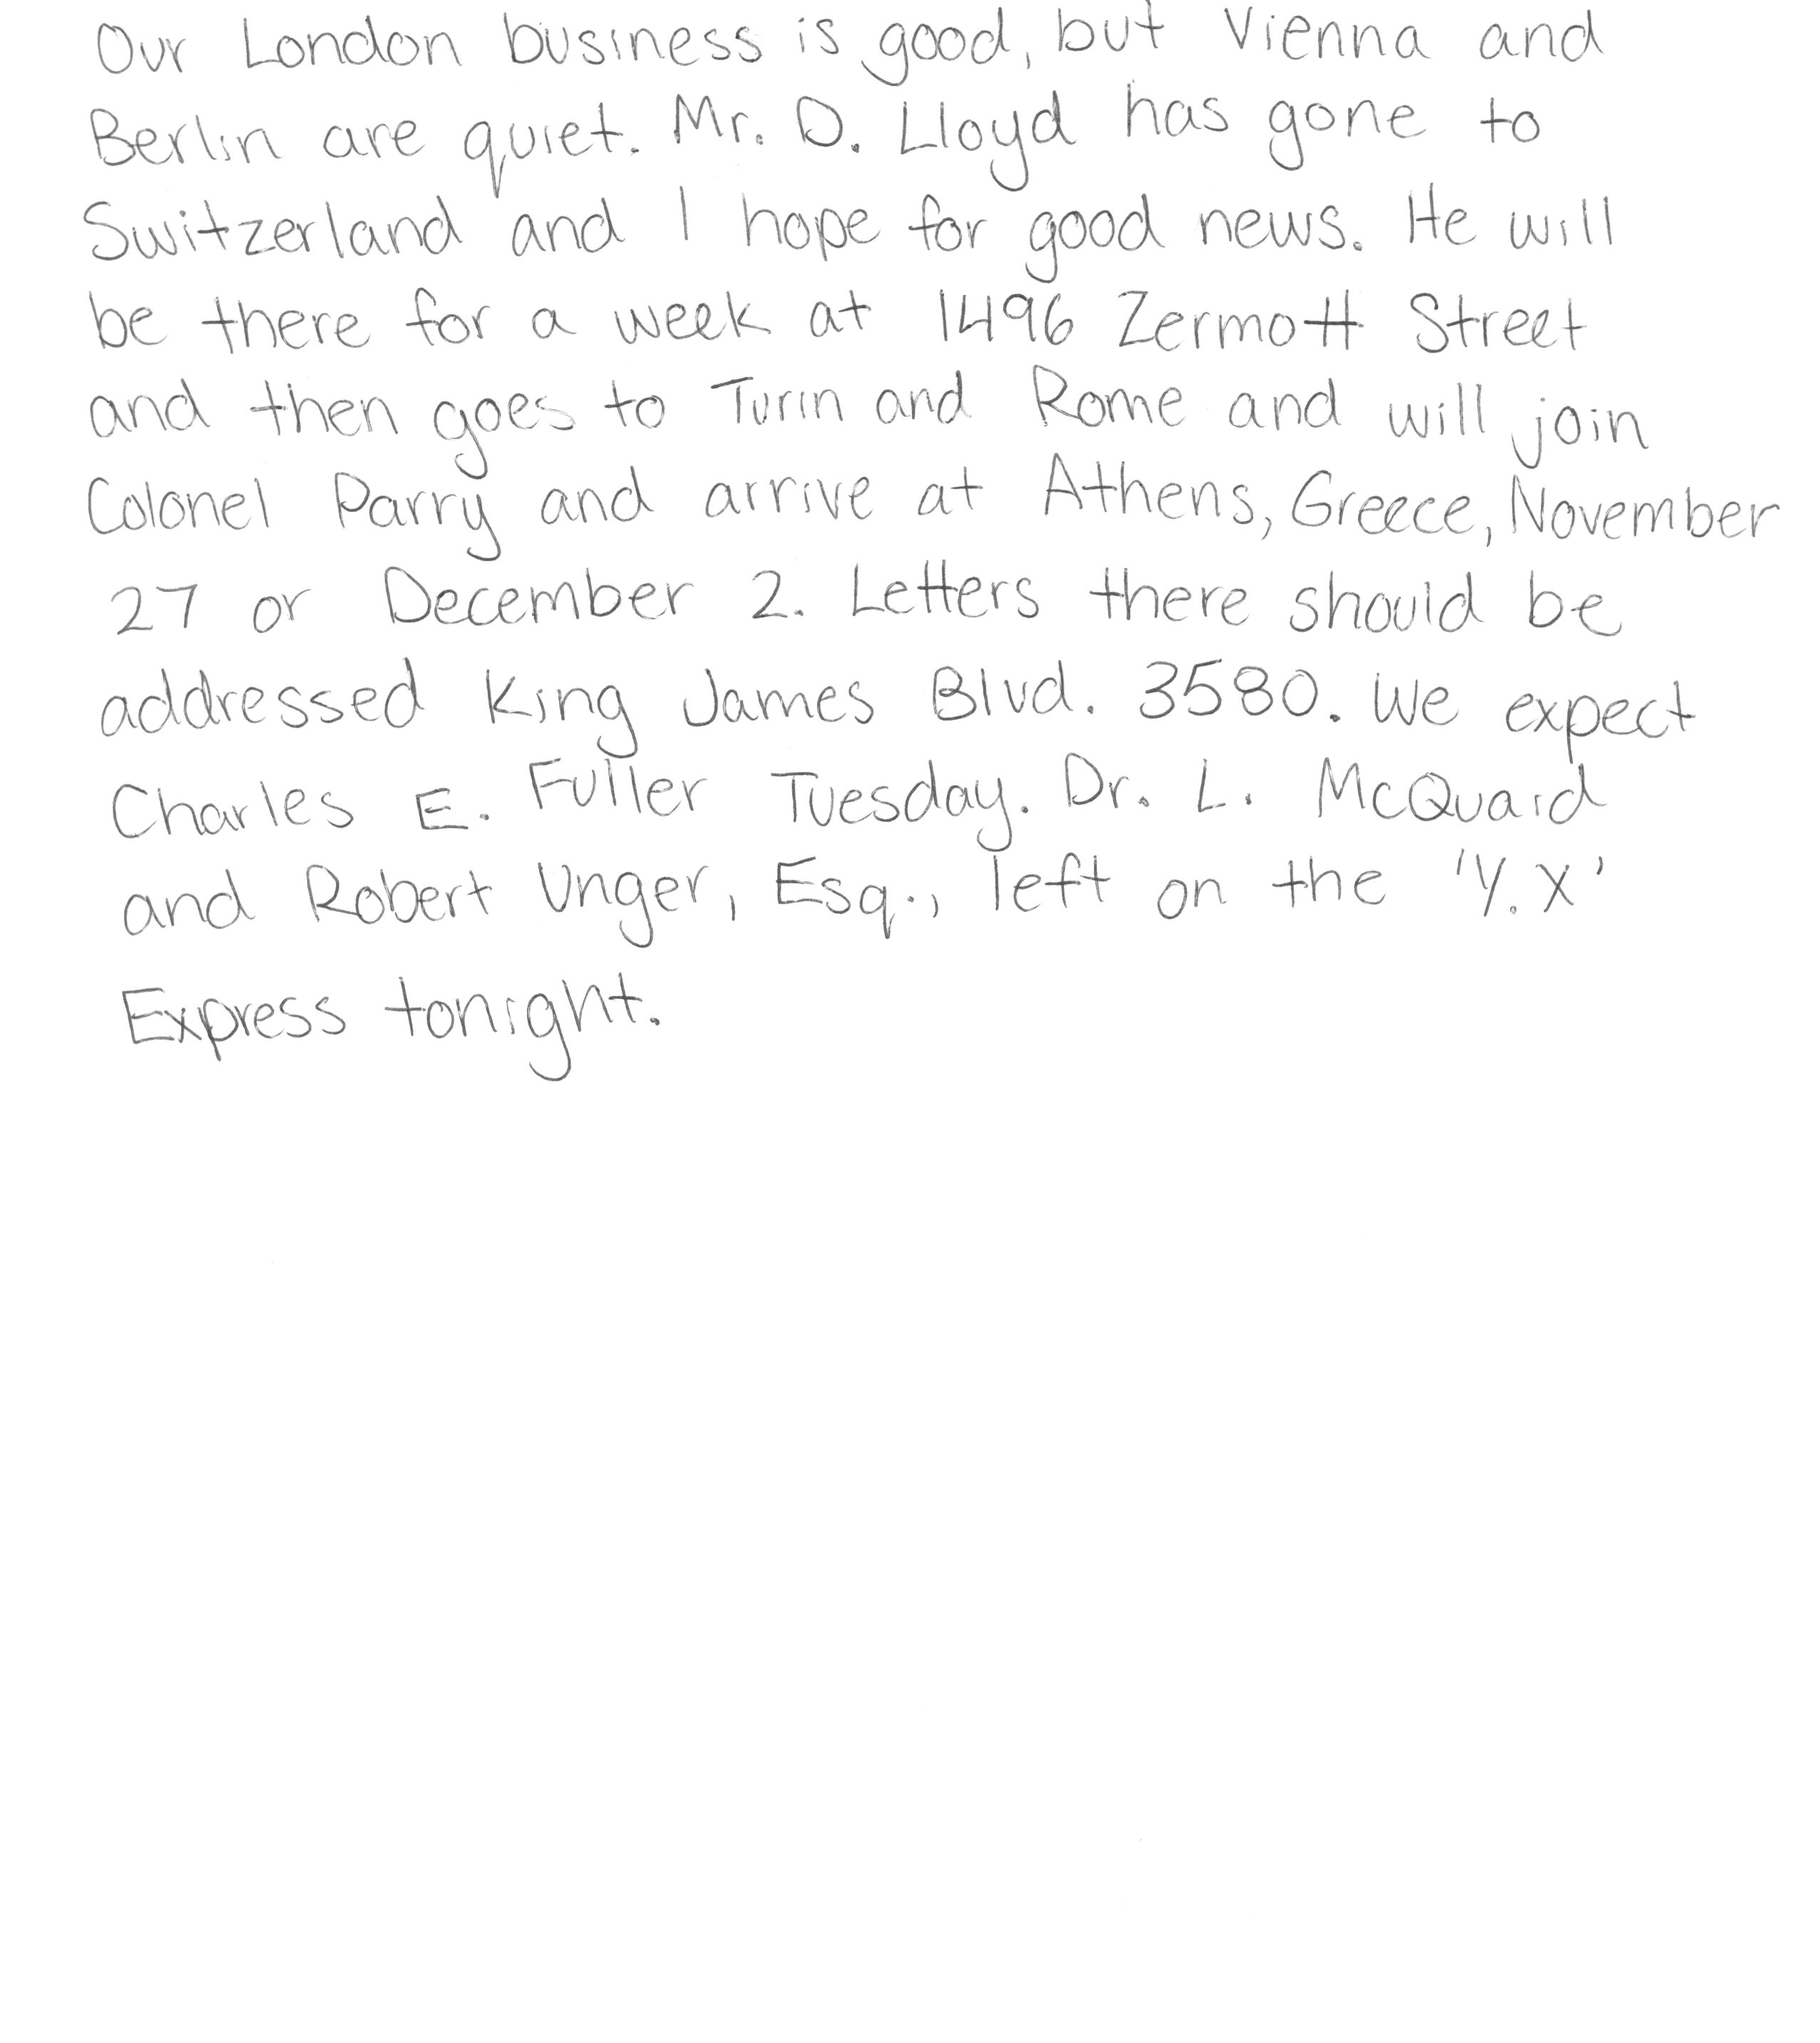 Our London business is good, but Vienna and
Berlin are quiet. Mr. D. Lloyd has gone to
Switzerland and I hope for good news. He will
be there for a week at 1496 Zermott Street
and then goes to Turin and Rome and will join
Colonel Parry and arrive at Athens, Greece, November
27 or December 2. Letters there should be
addressed King James Blvd. 3580. We expect
Charles E. Fuller Tuesday. Dr. L. McQuaid
and Robert Unger, Esq., left on the 'Y.X'
Express tonight.